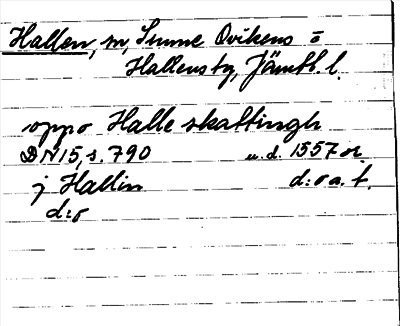 Hallen, m, Sunne Ovikens o
Hallens tg, Jämtl. l.
oppo Halle skattingh
DN 15, s. 790 u. d. 1557 or.
j Hallin d:o a. f.
d:o